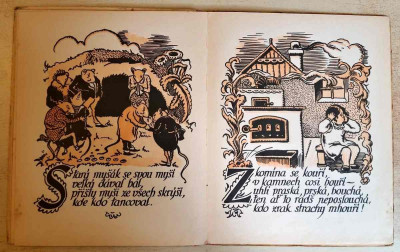 Starý myšák se svou myší
velký dával bál,
přišly myši ze všech skrýší,
kde kdo tancoval.
Z komína se kouří,
v kamnech cosi bouří –
uhlí praská, prská, bouchá,
ten ať to rads neposlouchá,
kdo zrak strachy mhouří!